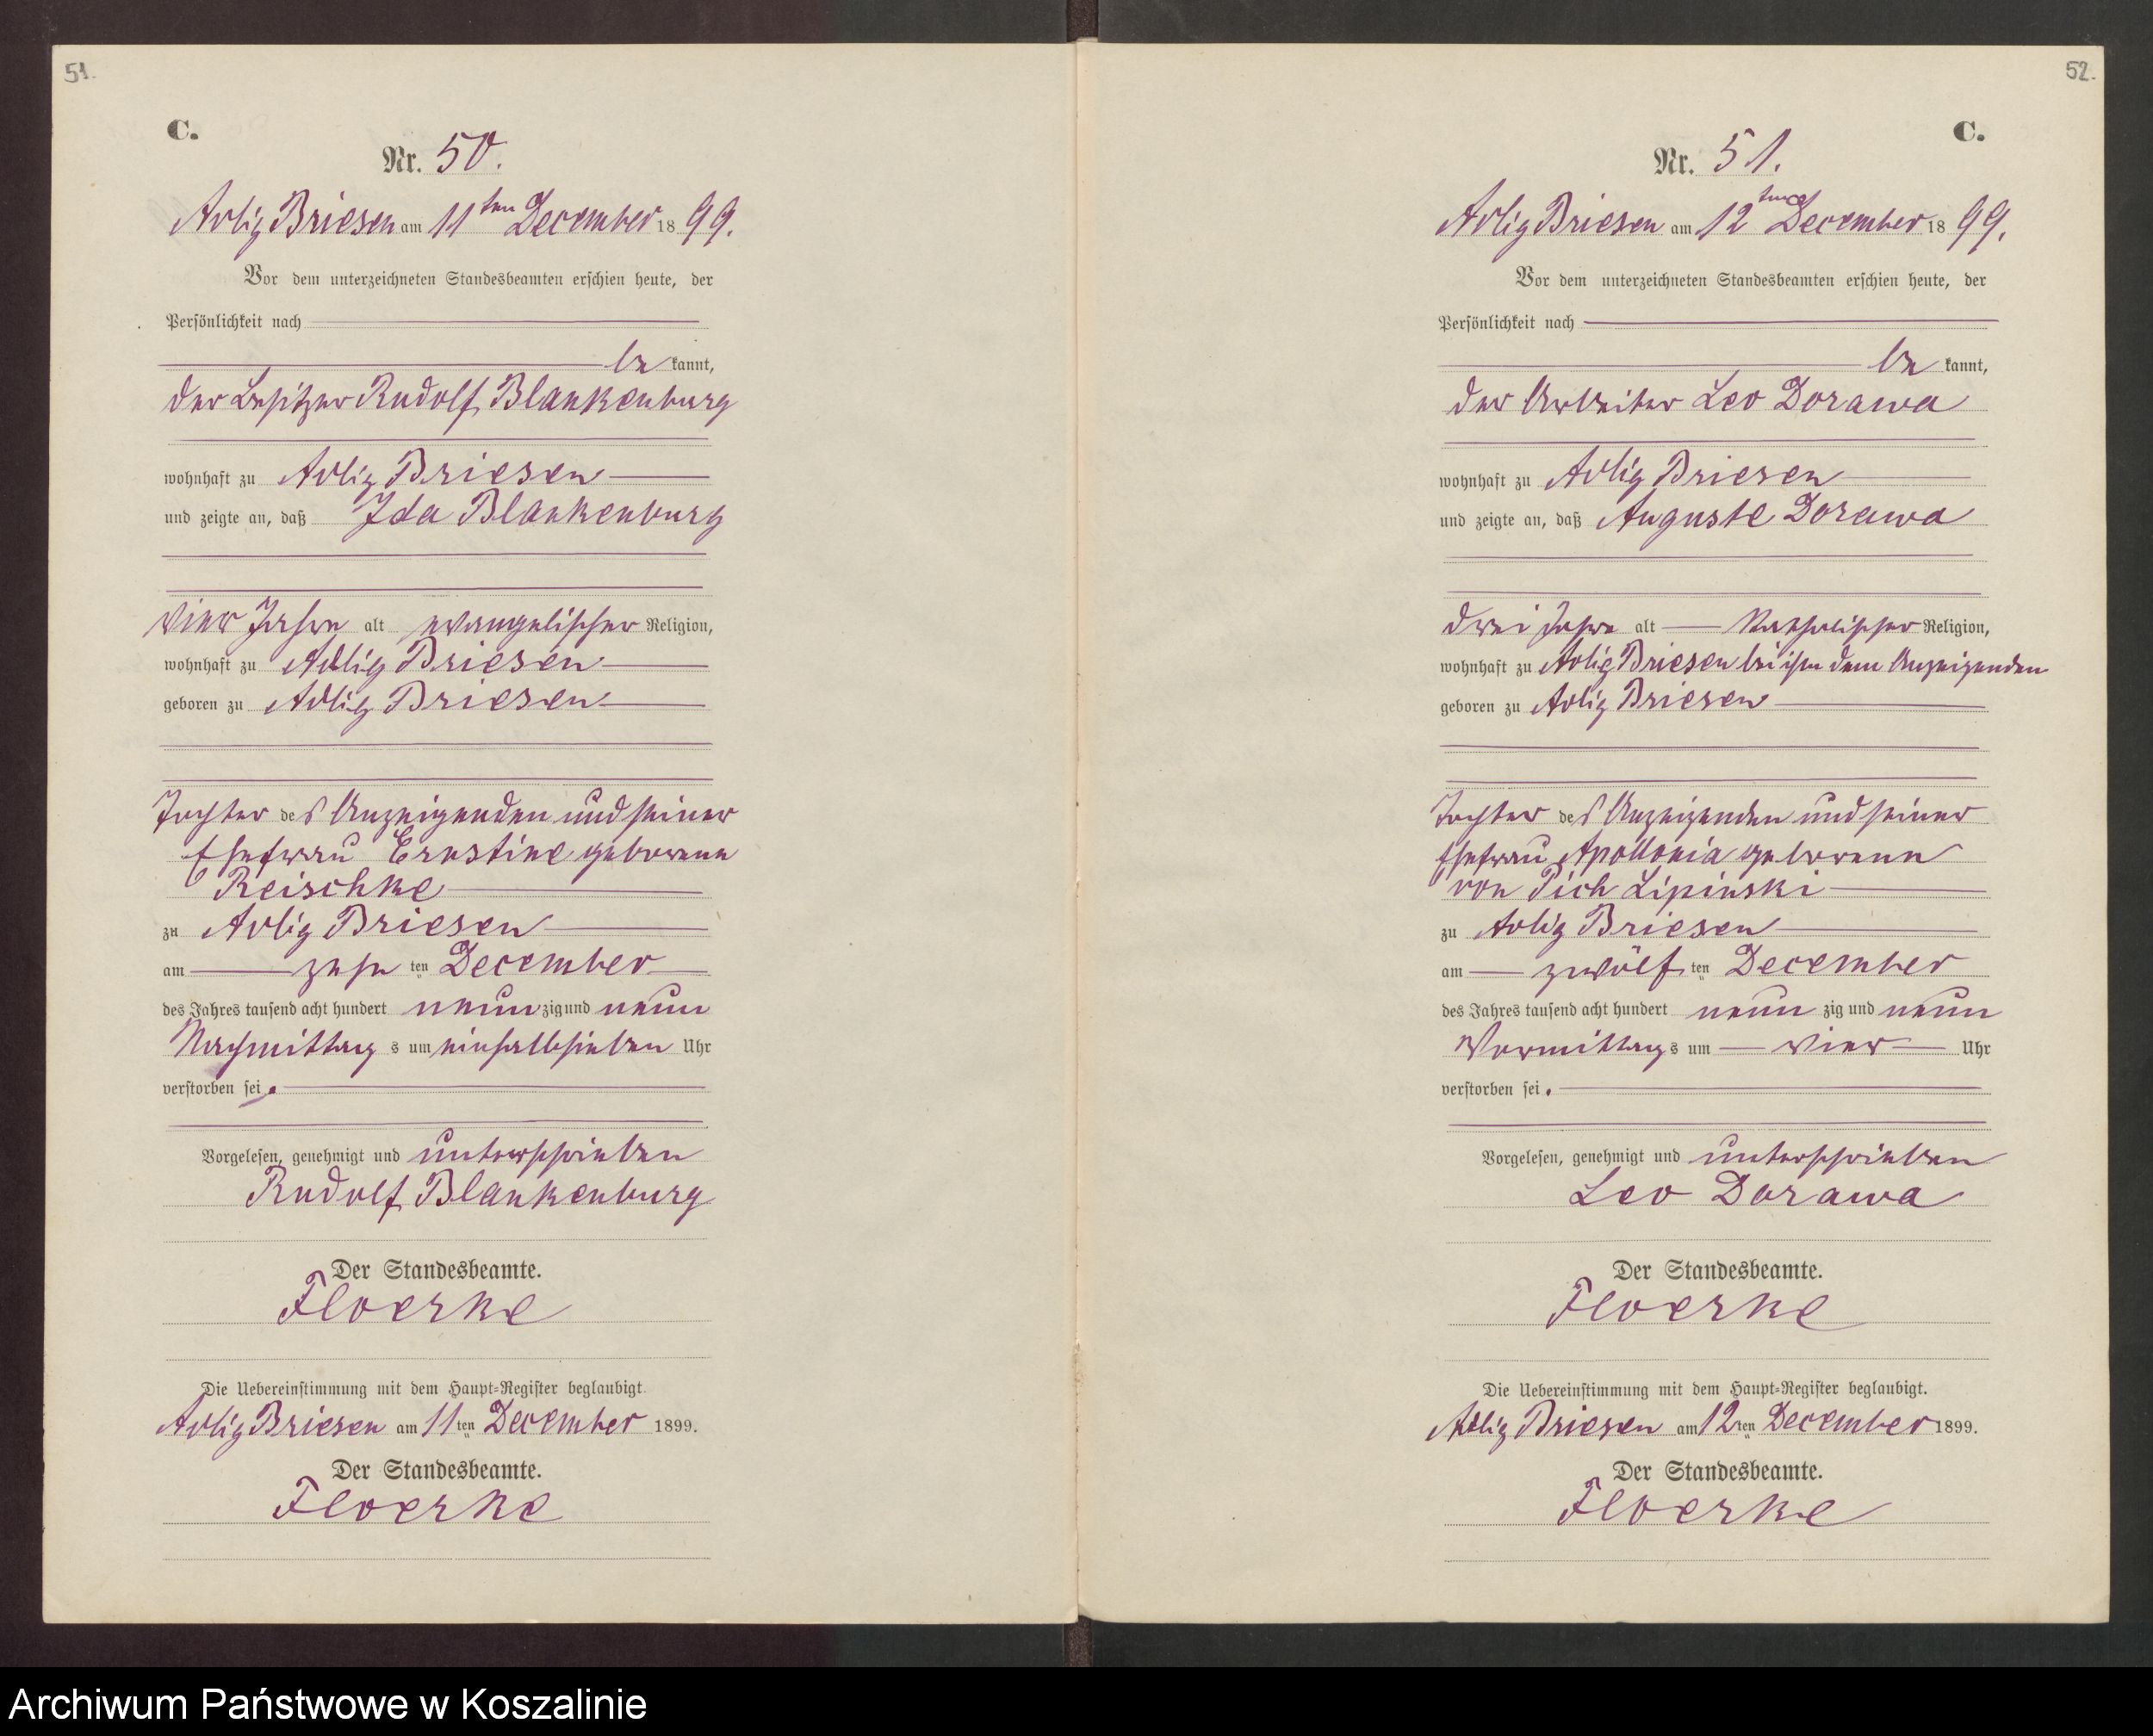 51.
C.
Nr. 50.
Adlig Briesen am 11ten December 1899.
Vor dem unterzeichneten Standesbeamten erschien heute, der
Persönlichkeit nach
be kannt,
der Besitzer Rudolf Blankenburg
wohnhaft zu Adlig Briesen
und zeigte an, daß Ida Blankenburg
vier Jahre alt evangelischer Religion,
wohnhaft zu Adlig Briesen
geboren zu Adlig Briesen
Tochter des Anzeigenden und seiner
Ehefrau Ernstine geborenen
Reischke
zu Adlig Briesen
am zehn ten December
des Jahres tausend acht hundert neun zig und neun
Nachmittag s um einhalbsieben Uhr
verstorben sei.
Vorgelesen, genehmigt und unterschrieben
Rudolf Blankenburg
Der Standesbeamte.
Floerke
Die Uebereinstimmung mit dem Haupt-Register beglaubigt.
Adlig Briesen am 11 ten December 1899.
Der Standesbeamte.
Floerke
52.
C.
Nr. 51.
Adlig Briesen am 12ten December 1899.
Vor dem unterzeichneten Standesbeamten erschien heute, der
Persönlichkeit nach
be kannt,
der Arbeiter Leo Dorawa
wohnhaft zu Adlig Briesen
und zeigte an, daß Auguste Dorawa
drei Jahre alt katholischer Religion,
wohnhaft zu Adlig Briesen bei ihm dem Anzeigenden
geboren zu Adlig Briesen
Tochter des Anzeigenden und seiner
Ehefrau Apollonia geborenen
von Pich Lipinski
zu Adlig Briesen
am zwölf ten December
des Jahres tausend acht hundert neun zig und neun
Vormittag s um vier Uhr
verstorben sei.
Vorgelesen, genehmigt und unterschrieben
Leo Dorawa
Der Standesbeamte.
Floerke
Die Uebereinstimmung mit dem Haupt-Register beglaubigt.
Adlig Briesen am 12 ten December 1899.
Der Standesbeamte.
Floerke
Archiwum Państwowe w Koszalinie